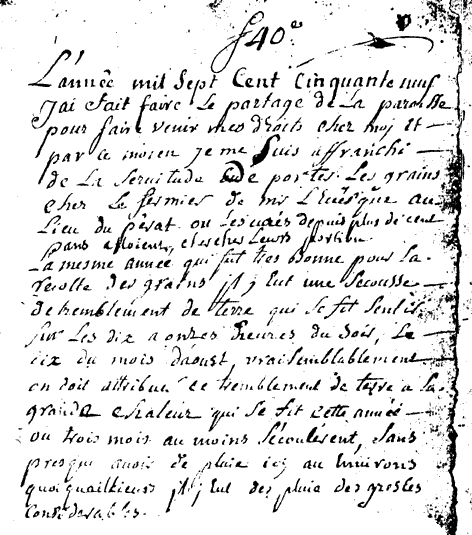 f 40e
L'année mil Sept Cent Cinquante neuf
J'ai était faire Le partage de La paroisse
pour faire venir mes droits chez moj et
par ce moien je me Suis affranchi
de La Servitude de portes Les grains
chez Le fermies de mr L'Euèsque au
Lieu du où Les curés depuis plus de cent
pans alloient chercher Leurs portion
La mesme année qui fut tres bonne pour La
recolte des grains Jl j Eut une Secousse
de tremblement de terre qui Se fit Sentis
sur Les dix a onzes heures du Sois, Le
dix du mois daoust, vraisemblablement
on doit attribuer ce tremblement de terre a La
grande chaleur qui Se fit cette année
ou trois mois au moins S'écoulèrent, Sans
presqu avois de pluie icj au Environs
quoiquailLieurs Jl j Eut des pluie des grosles
Considerables.